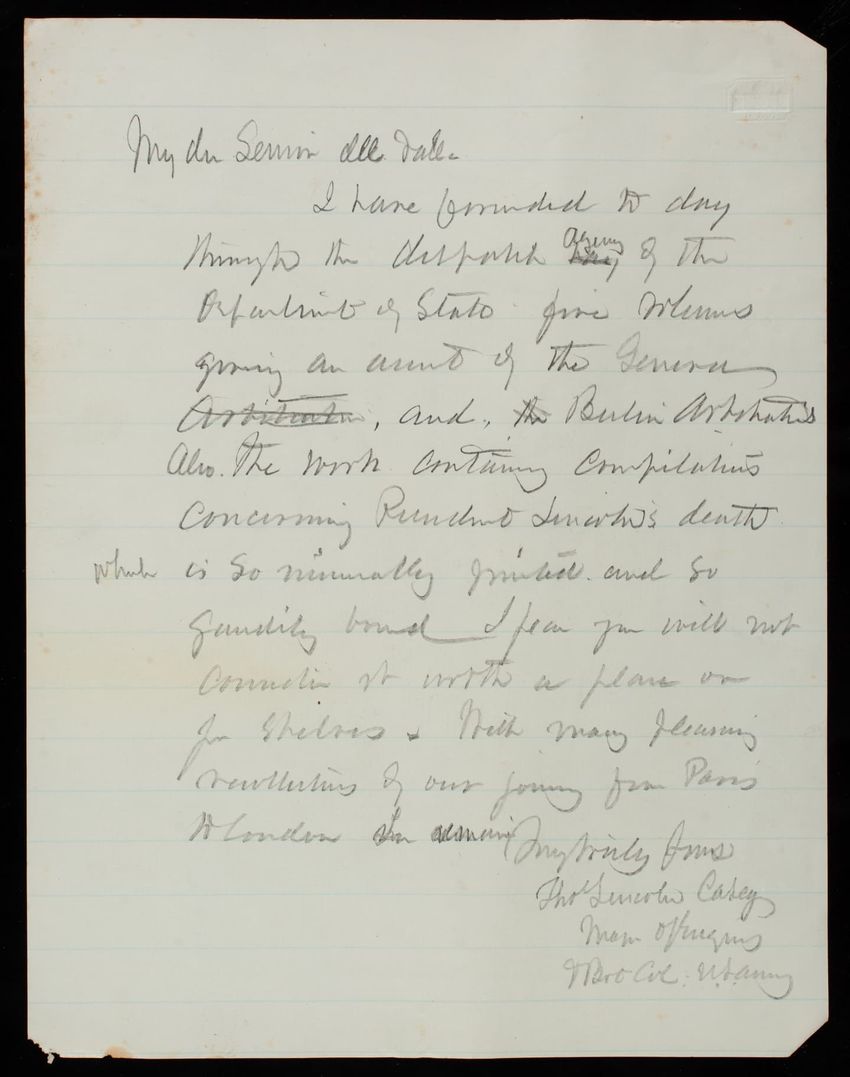 My dear Senior
I have forwarded to day
through the despatch Agency of the
Department of State five volumes
giving an account of the Geneva
Arbitration, and, the Berlin Arbitrations
Also. The work containing compilations
concerning President Lincoln's death
which is so minimally printed and so
gaudily bound I fear you will not
consider it worth a place on
your shelves. With many pleasing
recollections of our journey from Paris
to London I remain Very truly Yours
Thos Lincoln Casey
Major of Engrs
& Bvt Col. U.S. Army